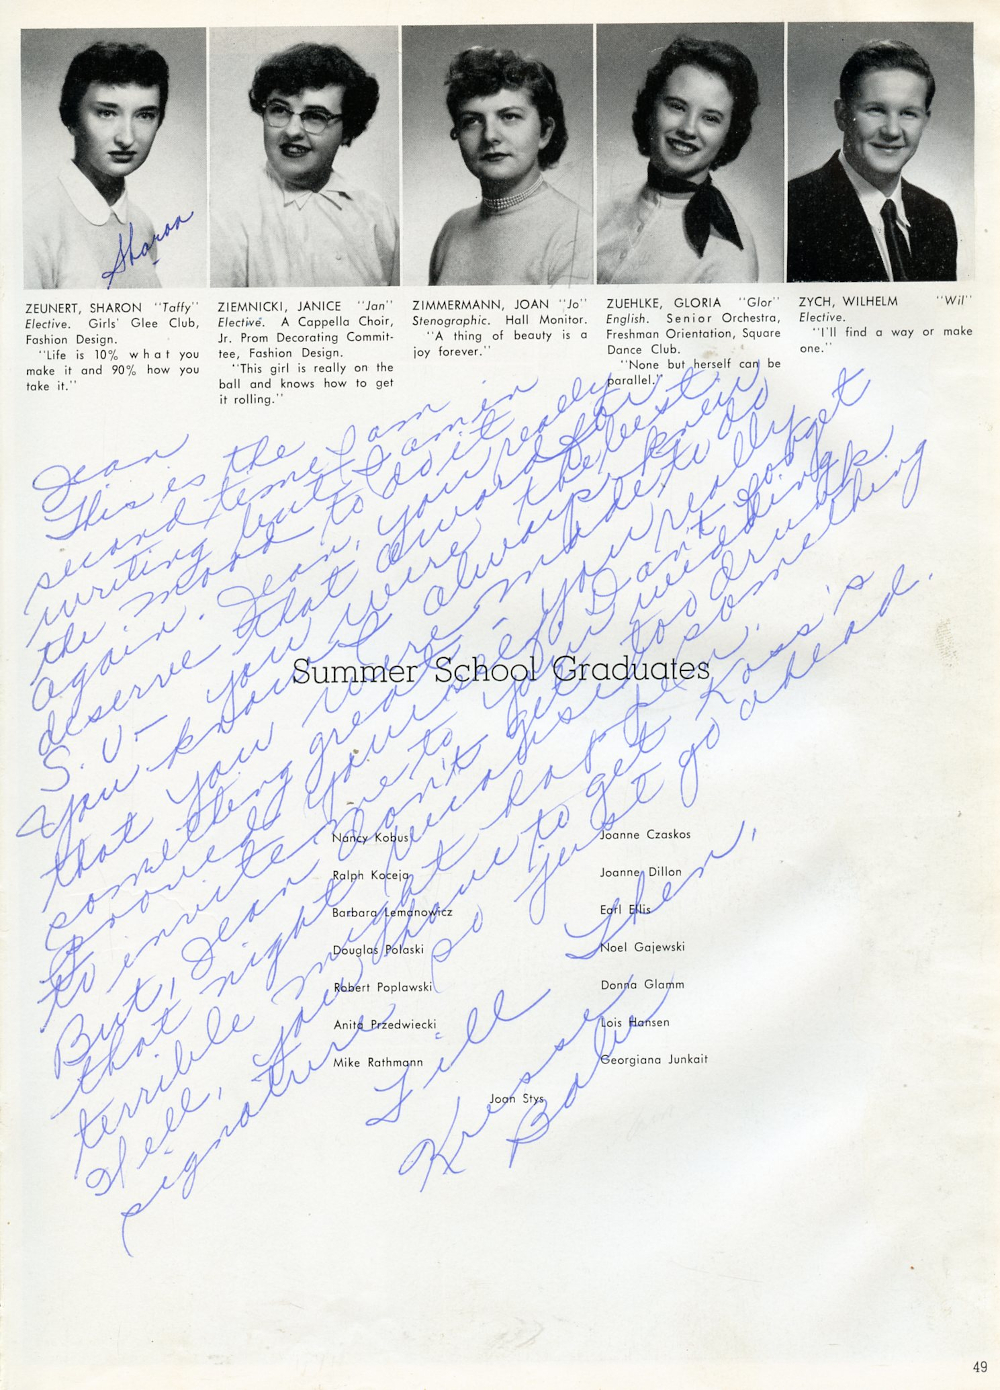 Sharon
ZEUNERT, SHARON "Taffy"
Elective. Girls' Glee Club,
Fashion Design.
"Life is 10% what you
make it and 90% how you
take it."
ZIEMNICKI, JANICE "Jan"
Elective. A Cappella Choir,
Jr. Prom Decorating Commit-
tee, Fashion Design.
"This girl is really on the
ball and knows how to get
it rolling."
ZIMMERMANN, JOAN "Jo"
Stenographic. Hall Monitor.
"A thing of beauty is a
joy forever."
ZUEHLKE, GLORIA "Glor"
English. Senior Orchestra,
Freshman Orientation, Square
Dance Club.
"None but herself can be
parallel."
ZYCH, WILHELM "Wil"
Elective.
"I'll find a way or make
one."
Jean
This is the
second time I am
writing but I am in
the mood to do it
again. Jean, you really
deserve that award for
S. U- you were the best
You know I always knew
that you were made to do
something great - you really
proved yourself. Don't forget
to invite me to your wedding
But, Jean don't get too drunk
that night because something
terrible might happen.
Hell, you have to get
signature so just go ahead.
Till then,
Babe
Summer School Graduates
Nancy Kobus
Ralph Koceja
Barbara Lemanowicz
Douglas Polaski
Robert Poplawski
Anita Przedwiecki
Mike Rathmann
Joanne Czaskos
Joanne Dillon
Earl Ellis
Noel Gajewski
Donna Glamm
Lois Hansen
Georgiana Junkait
Joan Stys
49